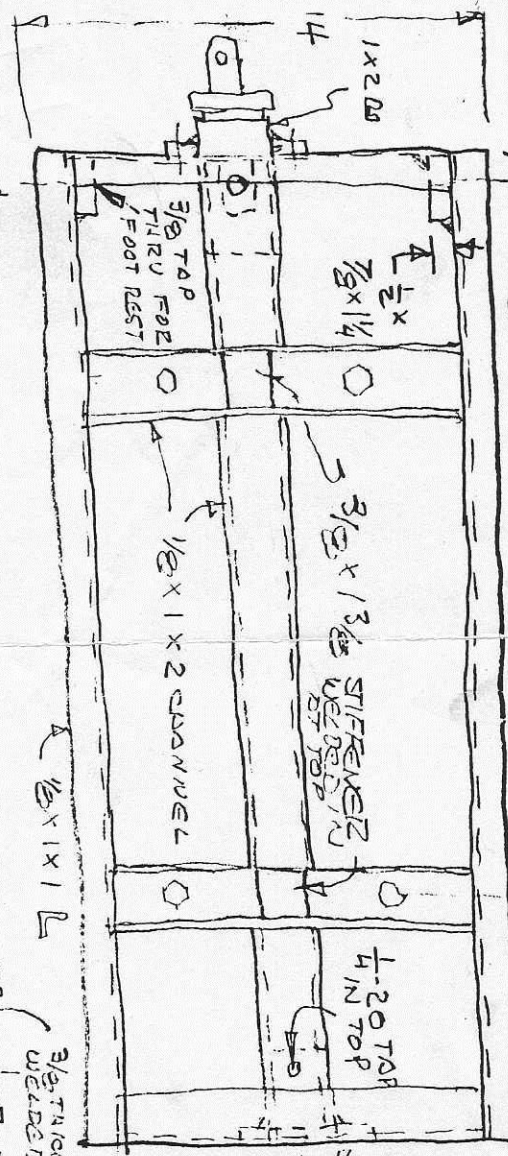 14
1x2
3/8 TAP
THRU FOR
FOOT REST
1/2 x
7/8 x 1 1/4
3/8 x 1 3/8 STIFFENER
WELDED IN
AT TOP
1/8 x 1 x 2 CHANNEL
1/8 x 1 x 1 L
1/4-20 TAP
IN TOP
3/8
WELDED